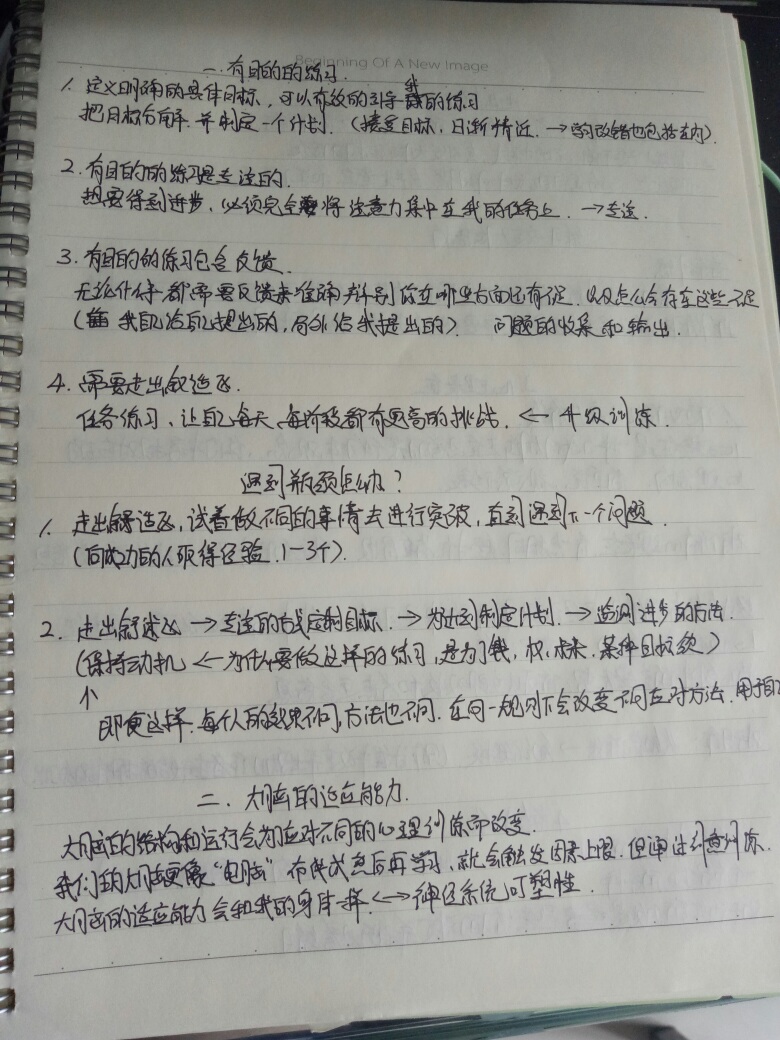 Beginning Of A New Image
一. 有目的的练习.
1. 定义明确的具体目标, 可以有效的引导我的练习
把目标分解. 并制定一个计划. (接受目标, 日渐精近. → 学习改错也包括在内).
2. 有目的的练习是专注的.
想要得到进步, 必须完全将注意力集中在我的任务上. → 专注.
3. 有目的的练习包含反馈.
无论什么事都需要反馈来准确判别你在哪些方面还有不足. 以及怎么会存在这些不足
(我自己给自己提出的, 局外给我提出的) 问题的收集和输出.
4. 需要走出舒适区.
任务练习、让自己每天、每阶段都有更高的挑战. ← 升级训练.
遇到瓶颈怎么办?
1. 走出舒适区, 试着做不同的事情去进行突破, 直到遇到下一个问题.
(向成功的人取得经验. 1-3个).
2. 走出舒适区 → 专注的方式定制目标. → 为达到制定计划. → 监测进步的方法.
(保持动机 ← 为什么要做这样的练习, 是为了钱, 权, 未来, 某种目标等)
↑
即使这样. 每个人的效果不同, 方法也不同. 在同一规则下会改变不同应对方法. 用于自
二. 大脑的适应能力.
大脑的结构和运行会为应对不同的心理训练而改变.
我们的大脑更像"电脑" 再学习, 就会触发因素上限. 但通过训练.
大脑的适应能力会和我的身体一样. ←→ 神经系统可塑性.